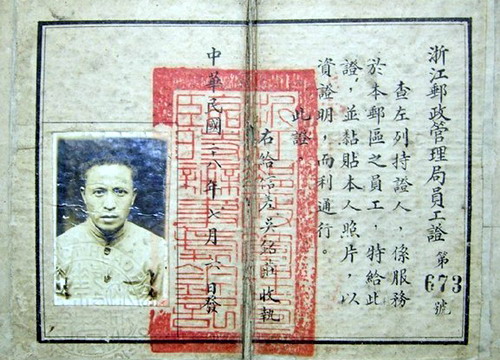 浙江郵政管理局員工證
第673號
查左列持證人,係服務
於本郵區之員工,特給此
證,並黏貼本人照片,以
資證明,而利通行。
此證。
右給信差吳 收執
中華民國 八年七月 日發